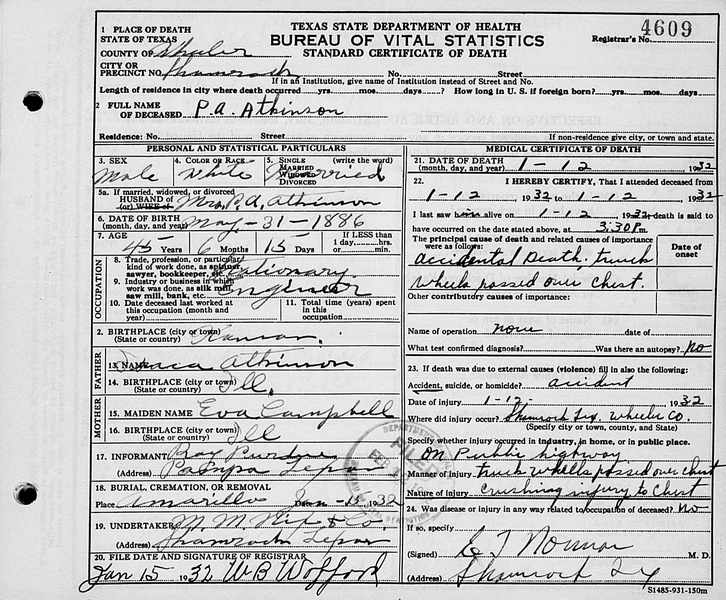 TEXAS STATE DEPARTMENT OF HEALTH
BUREAU OF VITAL STATISTICS
STANDARD CERTIFICATE OF DEATH
Registrar's No. 4609
1 PLACE OF DEATH
STATE OF TEXAS
COUNTY OF Wheeler
CITY OR
PRECINCT NO. Shamrock No. Street
If in an Institution, give name of Institution instead of Street and No.
Length of residence in city where death occurred yrs. mos. days. How long in U. S. if foreign born? yrs. mos. days.
2 FULL NAME
OF DECEASED P.A. Atkinson
Residence: No. Street If non-residence give city, or town and state.
PERSONAL AND STATISTICAL PARTICULARS
3. SEX
Male
4. COLOR OR RACE
White
5. SINGLE (write the word)
MARRIED
WIDOWED
DIVORCED
Married
5a. If married, widowed, or divorced
HUSBAND OF
(or) WIFE OF Mrs. P.A. Atkinson
6. DATE OF BIRTH
(month, day, and year) May-31-1886
7. AGE
45 Years 6 Months 15 Days
If LESS than
1 day, hrs.
or min.
OCCUPATION
8. Trade, profession, or particular
kind of work done, as spinner,
sawyer, bookkeeper, etc. Stationary
9. Industry or business in which
work was done, as silk mill,
saw mill, bank, etc. Engineer
10. Date deceased last worked at
this occupation (month and
year)
11. Total time (years) spent
in this occupation
2. BIRTHPLACE (city or town)
(State or country) Kansas.
FATHER
13. NAME Atkinson
14. BIRTHPLACE (city or town)
(State or country) Ill.
MOTHER
15. MAIDEN NAME Eva Campbell
16. BIRTHPLACE (city or town)
(State or country) Ill
17. INFORMANT Roy
(Address) Pampa Texas
18. BURIAL, CREMATION, OR REMOVAL
Place Amarillo Jan-15-1932
19. UNDERTAKER M. M. Nix & Co
(Address) Shamrock Texas
20. FILE DATE AND SIGNATURE OF REGISTRAR
Jan 15 1932 W B Wofford
MEDICAL CERTIFICATE OF DEATH
21. DATE OF DEATH
(month, day, and year) 1-12 1932
22. I HEREBY CERTIFY, That I attended deceased from
1-12 1932 to 1-12 1932
I last saw him alive on 1-12 1932 death is said to
have occurred on the date stated above, at 3:30 P.m.
The principal cause of death and related causes of importance
were as follows:
Date of
onset
accidental Death, truck
wheels passed over chest.
Other contributory causes of importance:
Name of operation none date of
What test confirmed diagnosis? Was there an autopsy? No
23. If death was due to external causes (violence) fill in also the following:
Accident, suicide, or homicide? accident
Date of injury 1-12 1932
Where did injury occur? Shamrock Tex. Wheeler Co.
(Specify city or town, county, and State)
Specify whether injury occurred in industry, in home, or in public place.
on Public highway
Manner of injury truck wheells passed over chest
Nature of injury crushing injury to Chest
24. Was disease or injury in any way related to occupation of deceased? No
If so, specify
(Signed) Norman M. D.
(Address) Shamrock Tex
FILED
FEB
S1485-931-150m